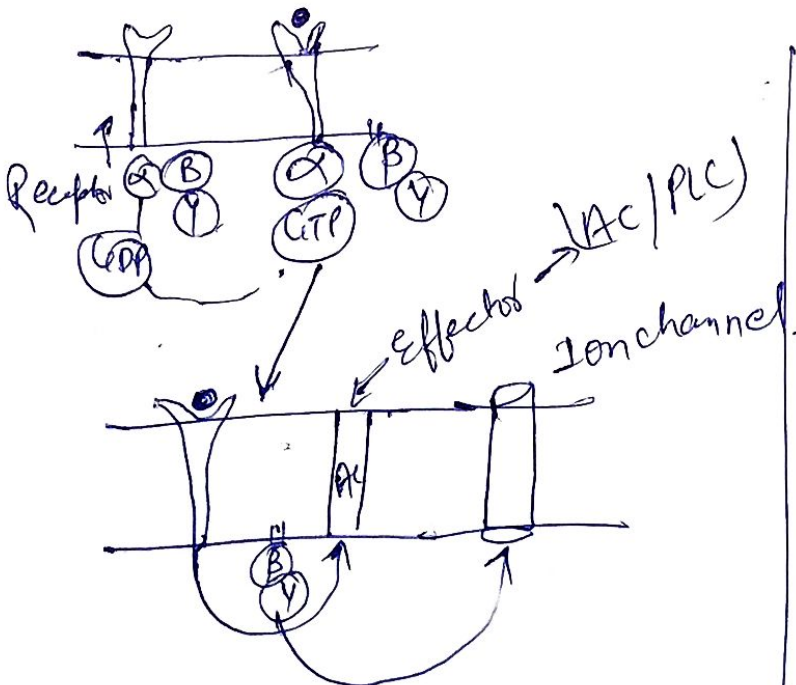 Receptor
α B
Y
GDP
α
GTP
β
Y
Effector → (AC/PLC)
Ion channel.
AC
B
Y